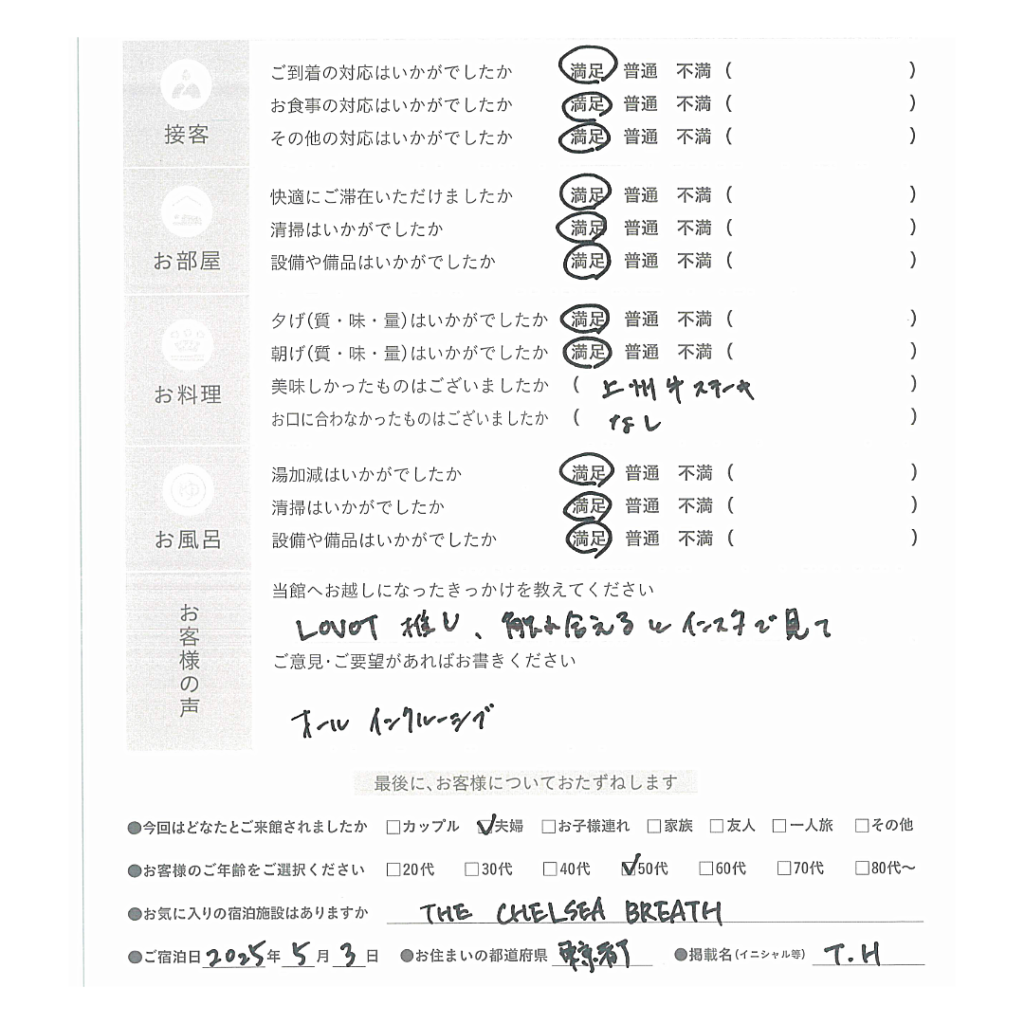 接客
ご到着の対応はいかがでしたか 満足 普通 不満 ( )
お食事の対応はいかがでしたか 満足 普通 不満 ( )
その他の対応はいかがでしたか 満足 普通 不満 ( )
お部屋
快適にご滞在いただけましたか 満足 普通 不満 ( )
清掃はいかがでしたか 満足 普通 不満 ( )
設備や備品はいかがでしたか 満足 普通 不満 ( )
お料理
夕げ(質・味・量)はいかがでしたか 満足 普通 不満 ( )
朝げ(質・味・量)はいかがでしたか 満足 普通 不満 ( )
美味しかったものはございましたか ( 上州牛ステーキ )
お口に合わなかったものはございましたか ( なし )
ゆ
お風呂
湯加減はいかがでしたか 満足 普通 不満 ( )
清掃はいかがでしたか 満足 普通 不満 ( )
設備や備品はいかがでしたか 満足 普通 不満 ( )
お客様の声
当館へお越しになったきっかけを教えてください
LOVOT 推し、触れ合えるとインスタで見て
ご意見・ご要望があればお書きください
オール インクルーシブ
最後に、お客様についておたずねします
●今回はどなたとご来館されましたか □カップル ☑夫婦 □お子様連れ □家族 □友人 □一人旅 □その他
●お客様のご年齢をご選択ください □20代 □30代 □40代 ☑50代 □60代 □70代 □80代〜
●お気に入りの宿泊施設はありますか THE CHELSEA BREATH
●ご宿泊日 2025年 5月 3日 ●お住まいの都道府県 東京都 ●掲載名(イニシャル等) T.H